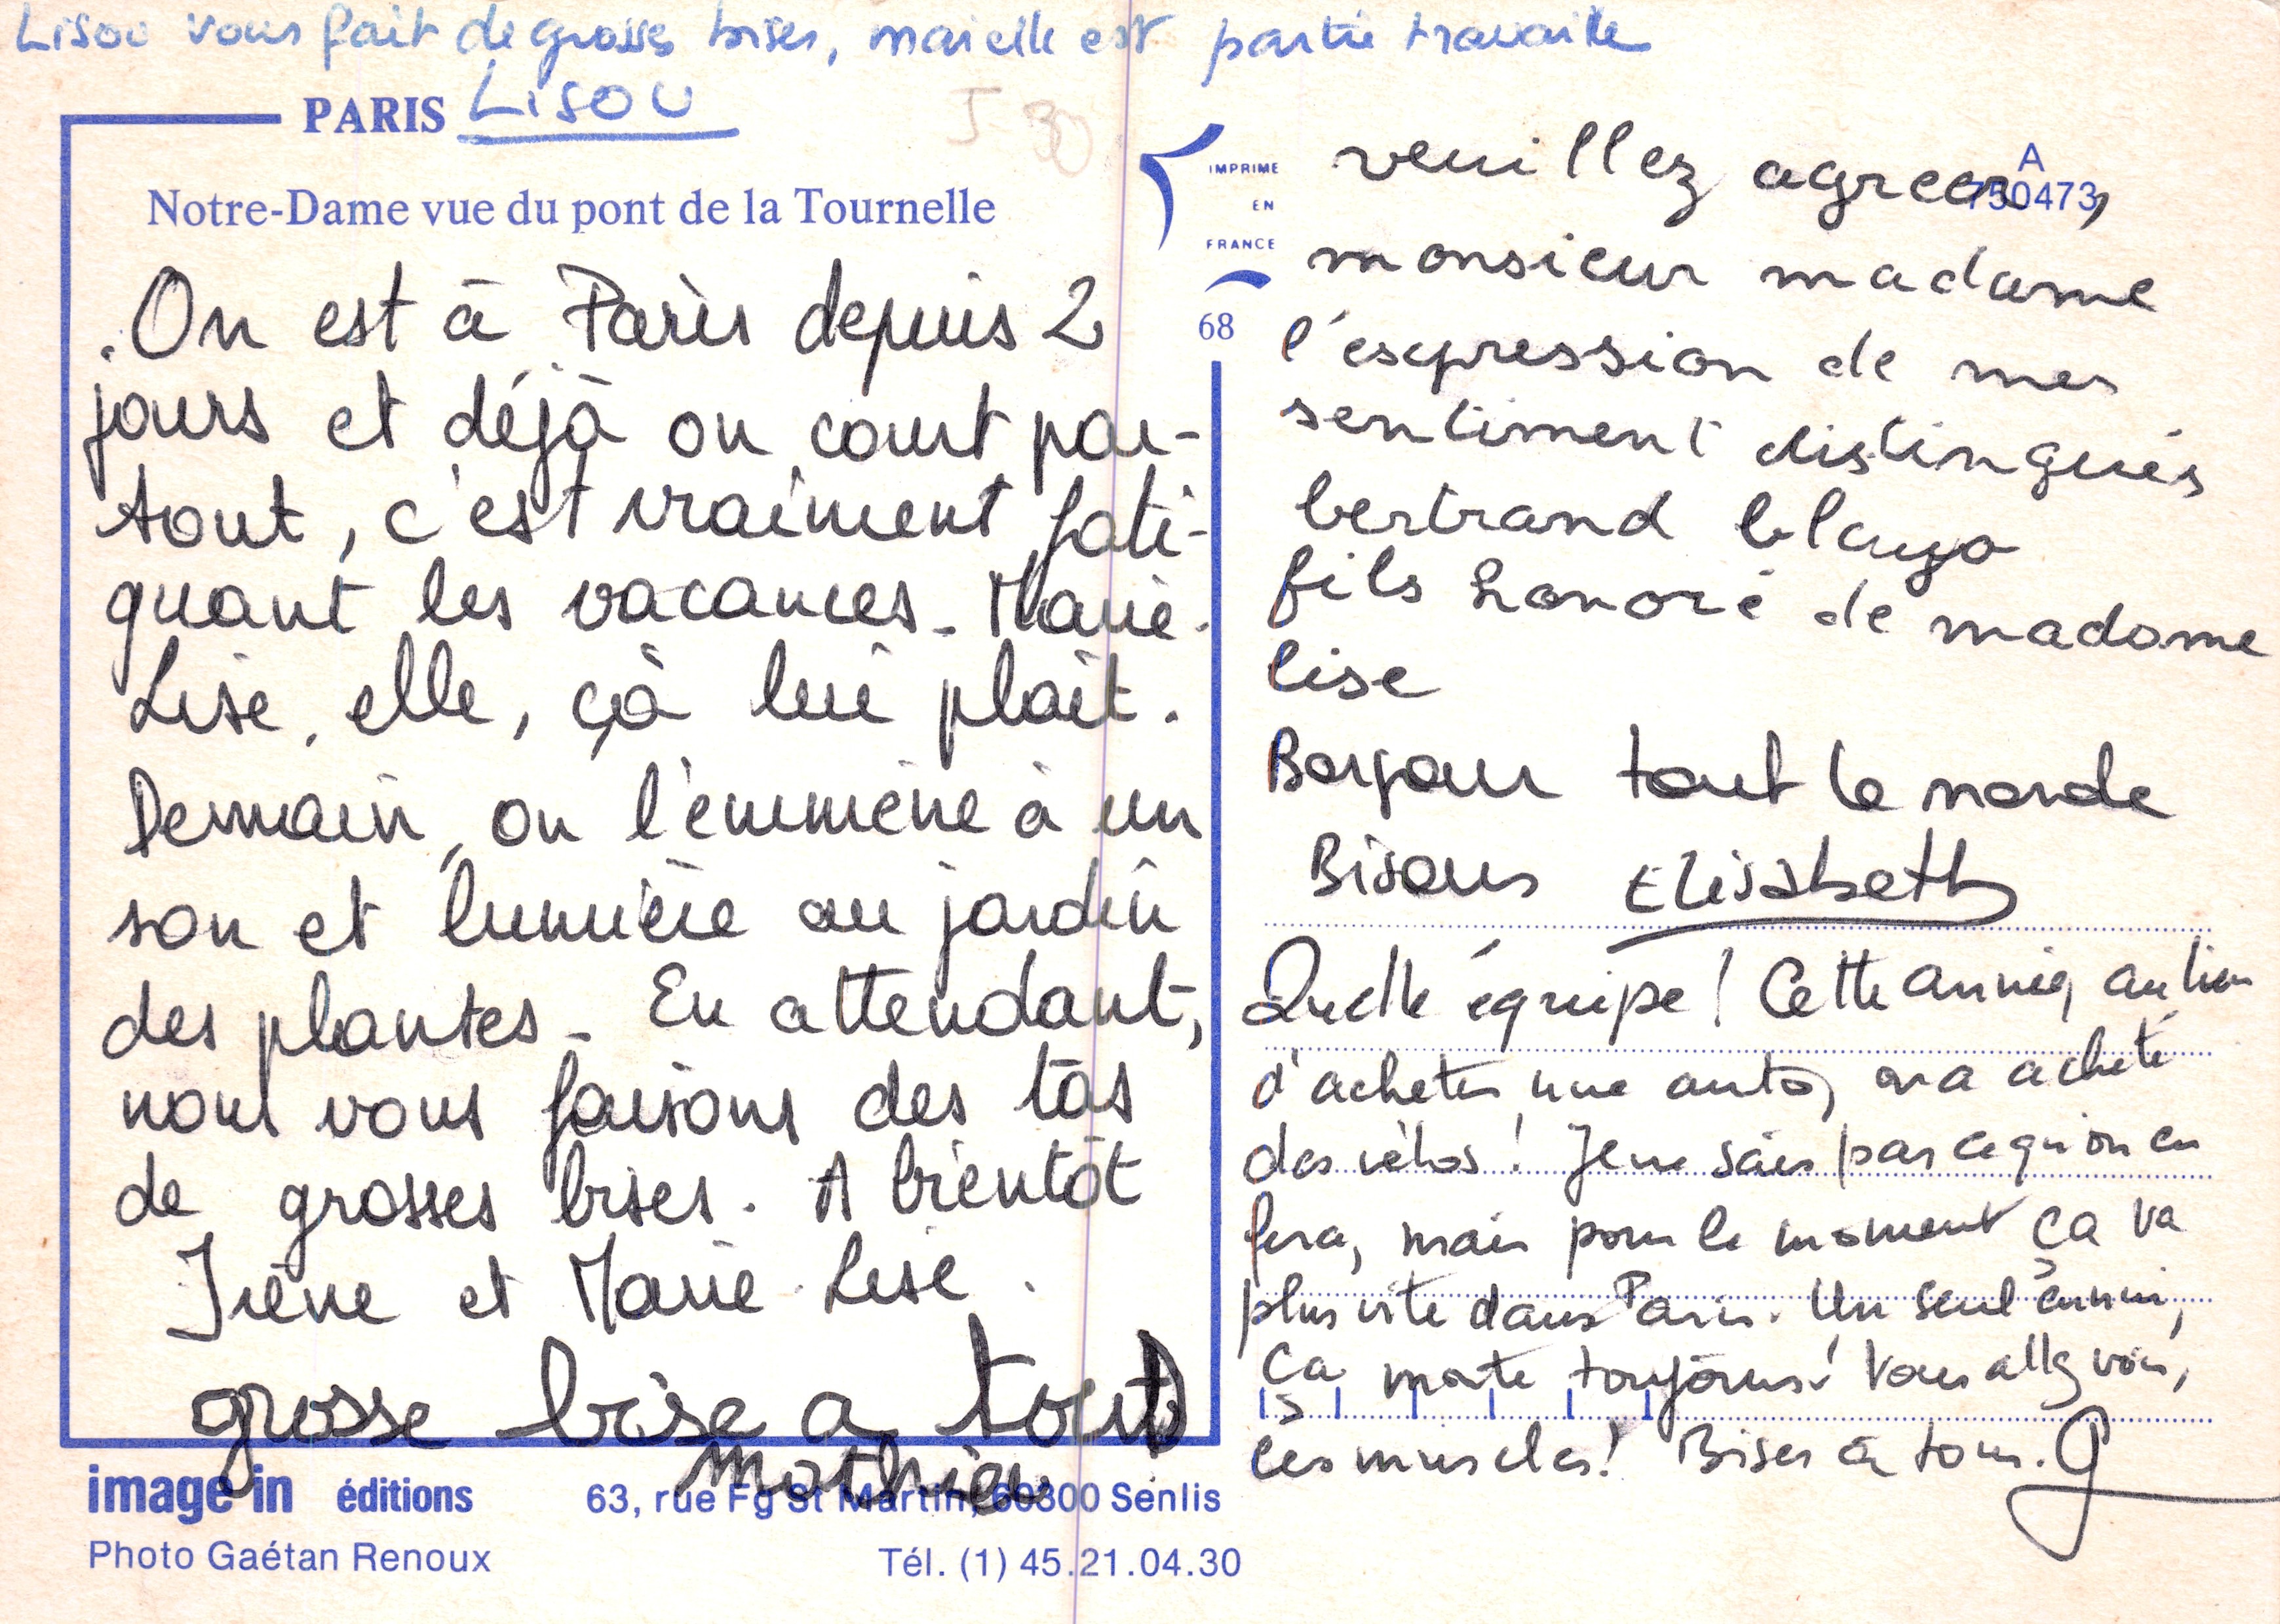 Lisou vous fait de grosses bises, mais elle est partie travailler
PARIS Lisou
J 30
Notre-Dame vue du pont de la Tournelle
On est à Paris depuis 2
jours et déjà on court par-
tout, c'est vraiment fati-
guant les vacances - Marie-
Lise, elle, çà lui plait.
Demain, on l'emmène à un
son et lumière au jardin
des plantes - En attendant,
nous vous faisons des tas
de grosses bises. A bientôt
Irène et Marie-Lise.
grosse bise a tout
mathieu
image in éditions
63, rue Fg St Martin, 60300 Senlis
Photo Gaétan Renoux
Tél. (1) 45.21.04.30
IMPRIME
EN
FRANCE
68
A
750473
veuillez agreer,
monsieur madame
l'expression de mes
sentiment distingués
bertrand
fils honoré de madame
lise
Bonjour tout le monde
Bisous Elisabeth
Quelle équipe! Cette année, au lieu
d'acheter une auto, on a acheté
des vélos! Je ne sais pas ce qu'on en
fera, mais pour le moment ça va
plus vite dans Paris. Un seul ennui,
ça monte toujours! Vous allez voir,
ces muscles! Bises à tous. G